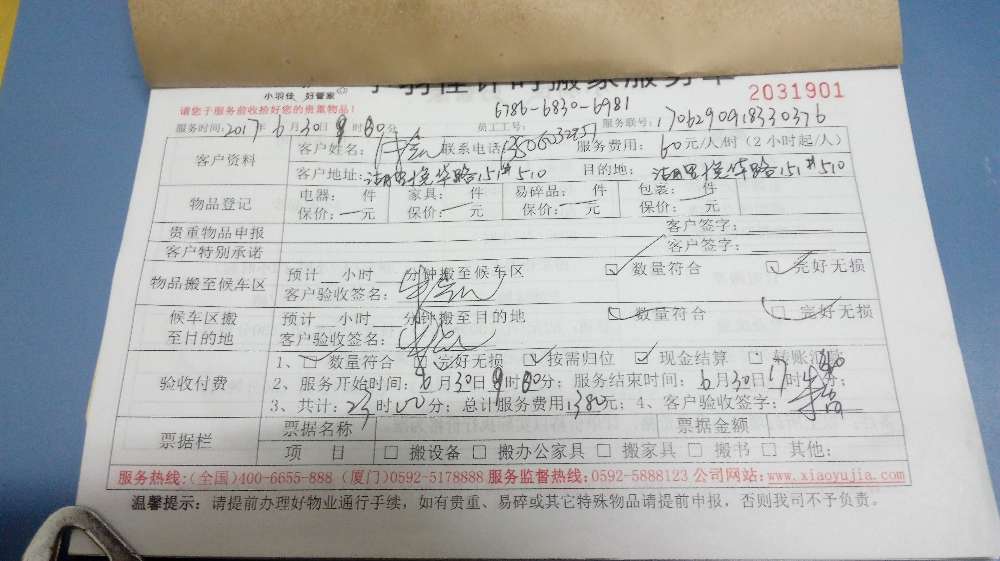 小羽佳 好管家
小羽佳计时搬家服务单
2031901
请您于服务前收捡好您的贵重物品!
6786-6830-6981
服务时间:2017年6月30日 时 分 员工工号: 服务联号:1706290918330376
客户资料 客户姓名: 联系电话: 服务费用:60元/人/时(2小时起/人)
客户地址: 华路151#510 目的地: 华路151#510
物品登记 电器: 件 家具: 件 易碎品: 件 包装: 件
保价:一元 保价:一元 保价:一元 保价:一元
贵重物品申报 客户签字:
客户特别承诺 客户签字:
物品搬至候车区 预计 小时 分钟搬至候车区 数量符合 完好无损
客户验收签名:
候车区搬至目的地 预计 小时 分钟搬至目的地 数量符合 完好无损
客户验收签名:
验收付费 1、 数量符合 完好无损 按需归位 现金结算 转账汇款
2、服务开始时间:6月30日 时 分;服务结束时间:6月30日17时 分;
3、共计:23时00分;总计服务费用1380元;4、客户验收签字:
票据栏 票据名称 票据金额
项 目 □ 搬设备 □ 搬办公家具 □ 搬家具 □ 搬书 □ 其他:
服务热线:(全国)400-6655-888 (厦门)0592-5178888 服务监督热线:0592-5888123 公司网站:www.xiaoyujia.com
温馨提示:请提前办理好物业通行手续,如有贵重、易碎或其它特殊物品请提前申报,否则我司不予负责。